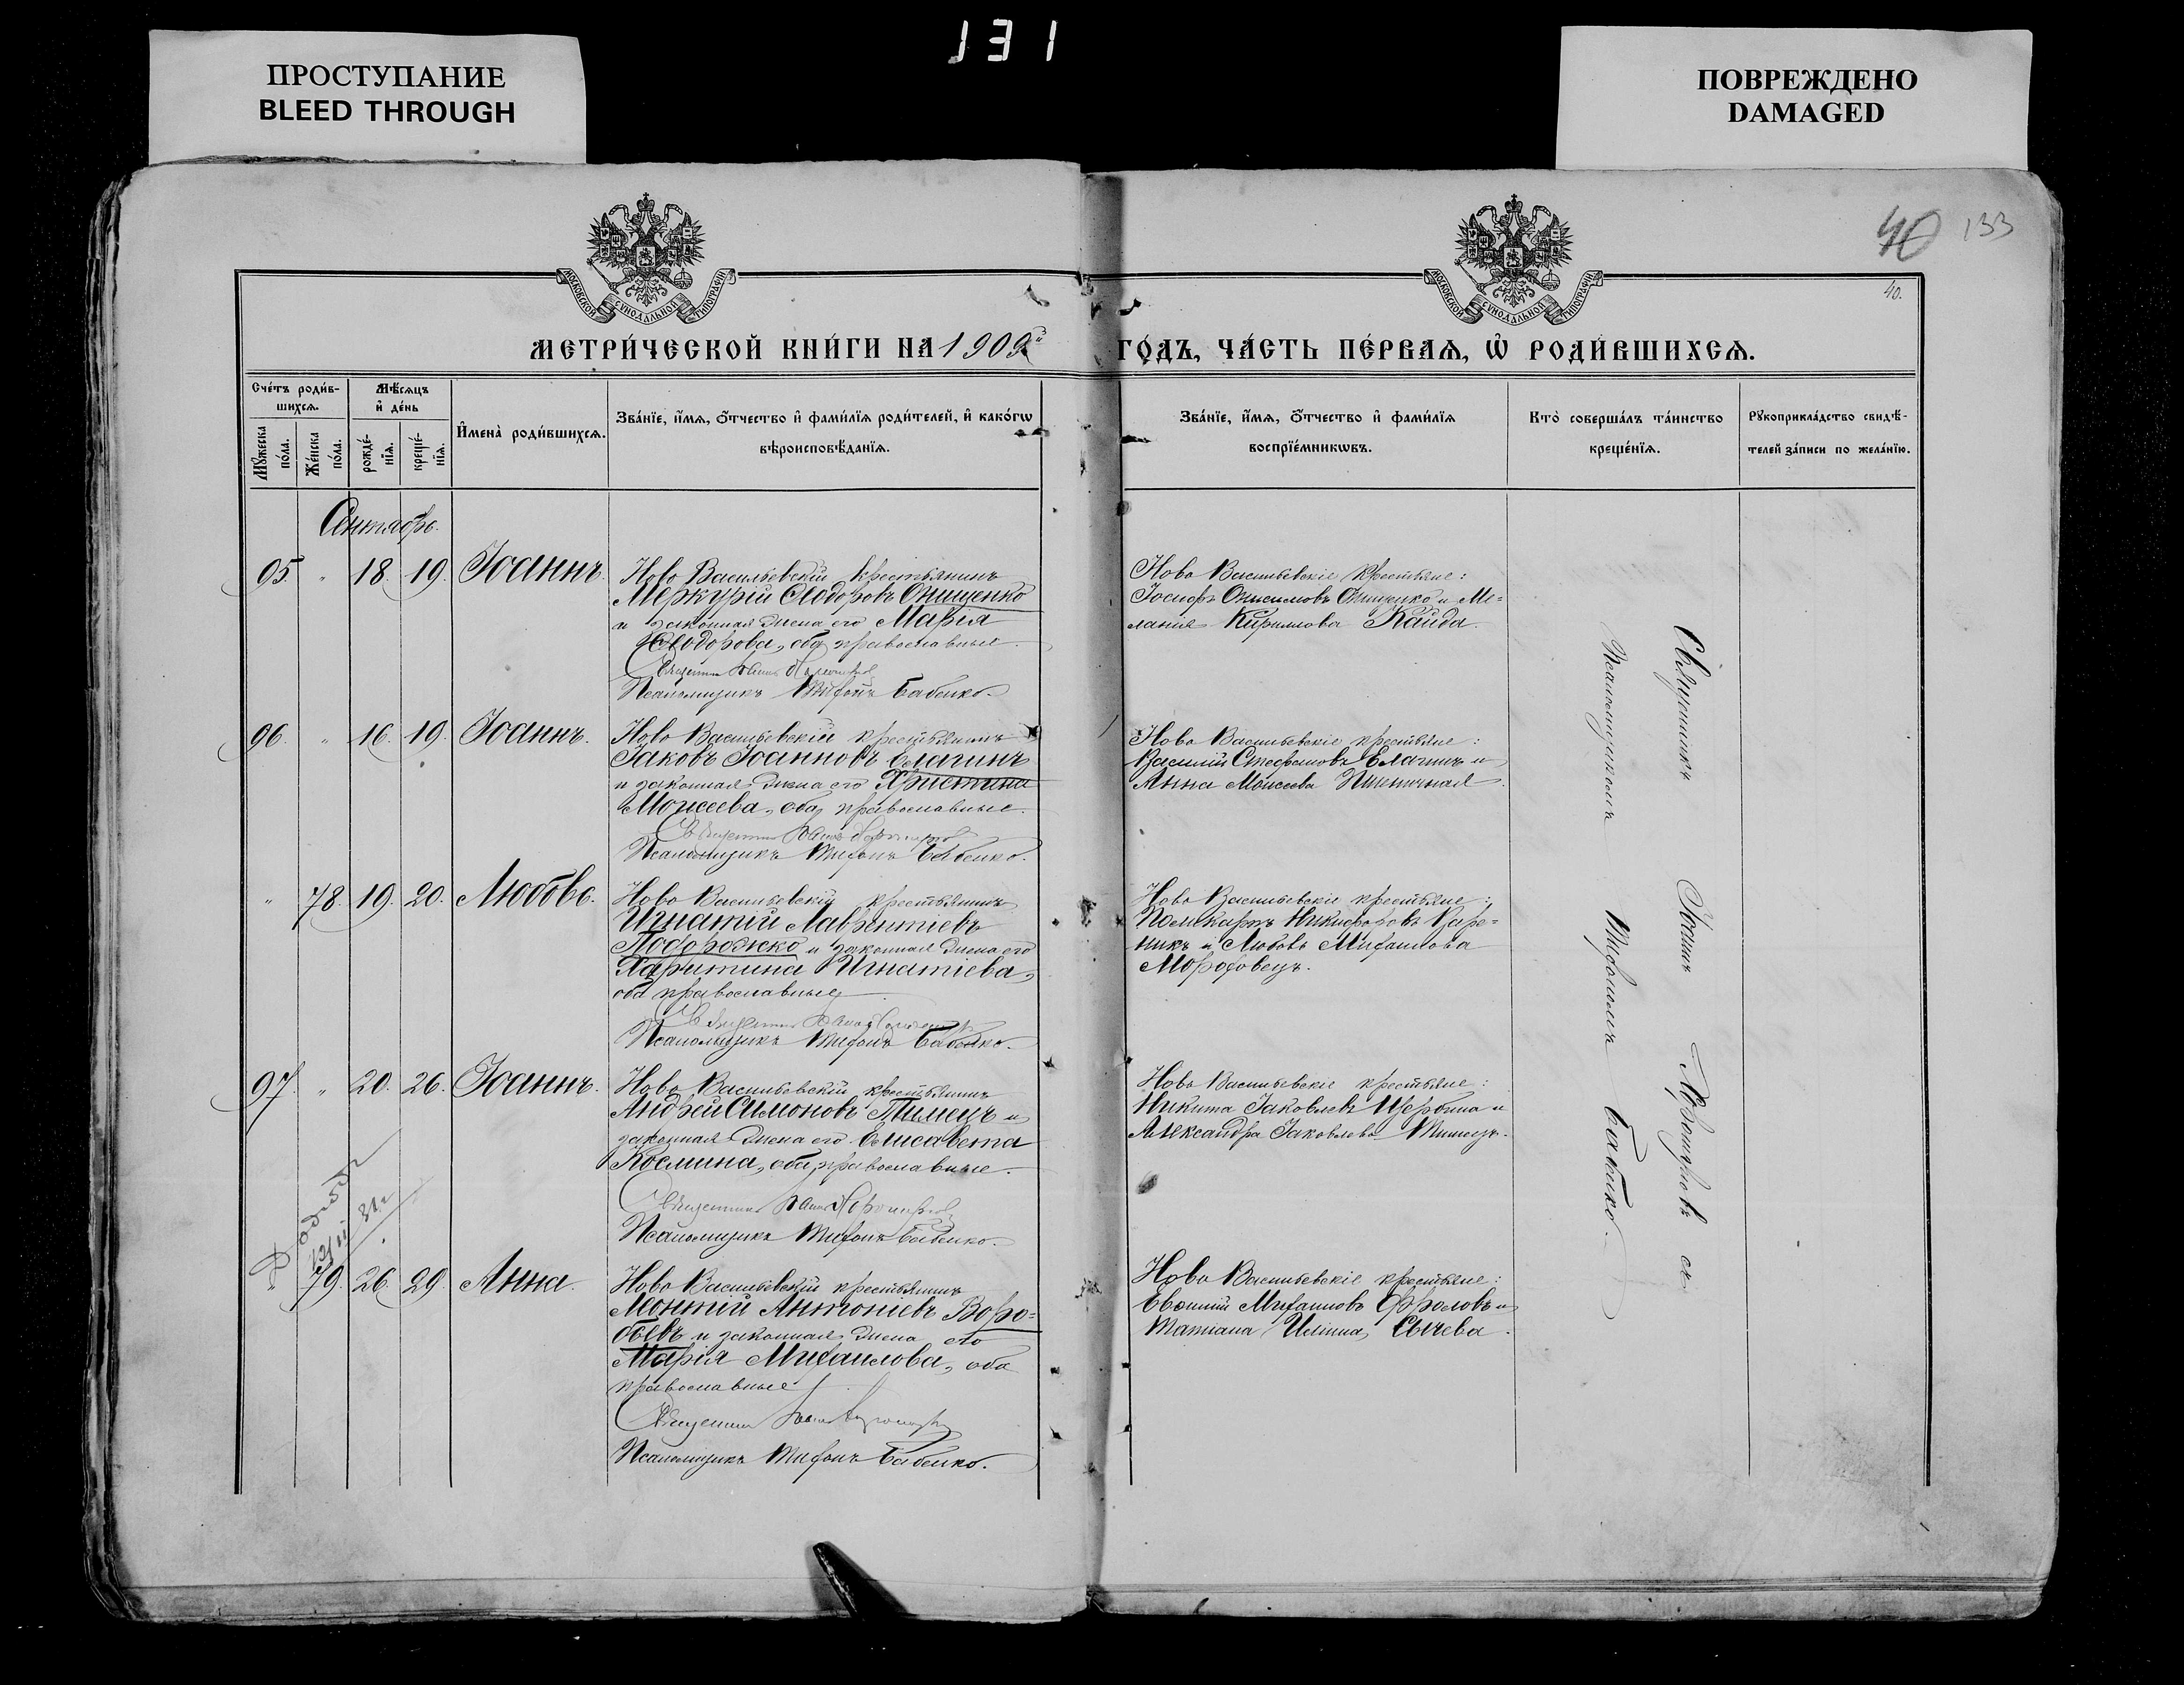 131
ПРОСТУПАНИЕ
BLEED THROUGH
ПОВРЕЖДЕНО
DAMAGED
40 133
40.
МОСКОВСКОЙ СѴНОДАЛЬНОЙ ТИПОГРАФІИ
МОСКОВСКОЙ СѴНОДАЛЬНОЙ ТИПОГРАФІИ
МЕТРИ́ЧЕСКОЙ КНИ́ГИ НА 1909й ГО́ДЪ, ЧА́СТЬ ПЕ́РВАѦ, Ѡ҆ РОДИ́ВШИХСѦ.
Сче́тъ роди́в-
шихсѧ.
Мѣ́сѧцъ
и҆ де́нь
Мꙋ́жеска
по́ла.
Же́нска
по́ла.
рожде́-
нїѧ.
креще́-
нїѧ.
И҆мена̀ роди́вшихсѧ.
Зва́нїе, и҆́мѧ, ѻ҆́тчество и҆ фами́лїѧ роди́телей, и҆ како́гѡ
вѣроисповѣ́данїѧ.
Зва́нїе, и҆́мѧ, ѻ҆́тчество и҆ фами́лїѧ
воспрїе́мникѡвъ.
Кто̀ соверша́лъ та́инство
креще́нїѧ.
Рꙋкоприкла́дство свидѣ́-
телей за́писи по жела́нїю.
Сентябрь.
95. " 18. 19. Іоаннъ.
Ново Васильевскій крестьянинъ
Меркурій Ѳеодоровъ Онищенко
и законная жена его Марія
Ѳеодорова, оба православные.
Священникъ Іоаннъ
Псаломщикъ Тифонъ Бабенко.
Ново Васильевскіе крестьяне:
Іосифъ Онисимовъ Онищенко и Ме=
ланія Кириллова Кайда.
96. " 16. 19. Іоаннъ.
Ново Васильевскій крестьянинъ
Іаковъ Іоанновъ Елагинъ
и законная жена его Христина
Моисеева, оба православные.
Священникъ Іоаннъ
Псаломщикъ Тифонъ Бабенко.
Ново Васильевскіе крестьяне:
Василій Стефановъ Елагинъ и
Анна Моисеева Пшеничная.
" 78. 19. 20. Любовь.
Ново Васильевскій крестьянинъ
Игнатій Лаврентіевъ
Подорожко и законная жена его
Харитина Игнатіева,
оба православные
Священникъ Іоаннъ
Псаломщикъ Тифонъ Бабенко.
Ново Васильевскіе крестьяне:
Поликарпъ Никифоровъ Варе=
никъ и Любовь Михаилова
Морозовецъ.
97. " 20. 26. Іоаннъ.
Ново Васильевскій крестьянинъ
Андрей Симоновъ Тимецъ и
законная жена его Елисавета
Космина, оба православные.
Священникъ Іоаннъ
Псаломщикъ Тифонъ Бабенко.
Ново Васильевскіе крестьяне:
Никита Іаковлевъ Щербина и
Александра Іаковлева Тимецъ.
" 79. 26. 29. Анна.
Ново Васильевскій крестьянинъ
Леонтій Антоніевъ Воро=
бьевъ и законная жена его
Марія Михаилова, оба
православные
Священникъ Іоаннъ
Псаломщикъ Тифонъ Бабенко.
Ново Васильевскіе крестьяне:
Евѳимій Михаиловъ Фроловъ и
Татіана Иліина Сычева.
Священникъ Іоаннъ съ
Псаломщикомъ Тифономъ Бабенко.